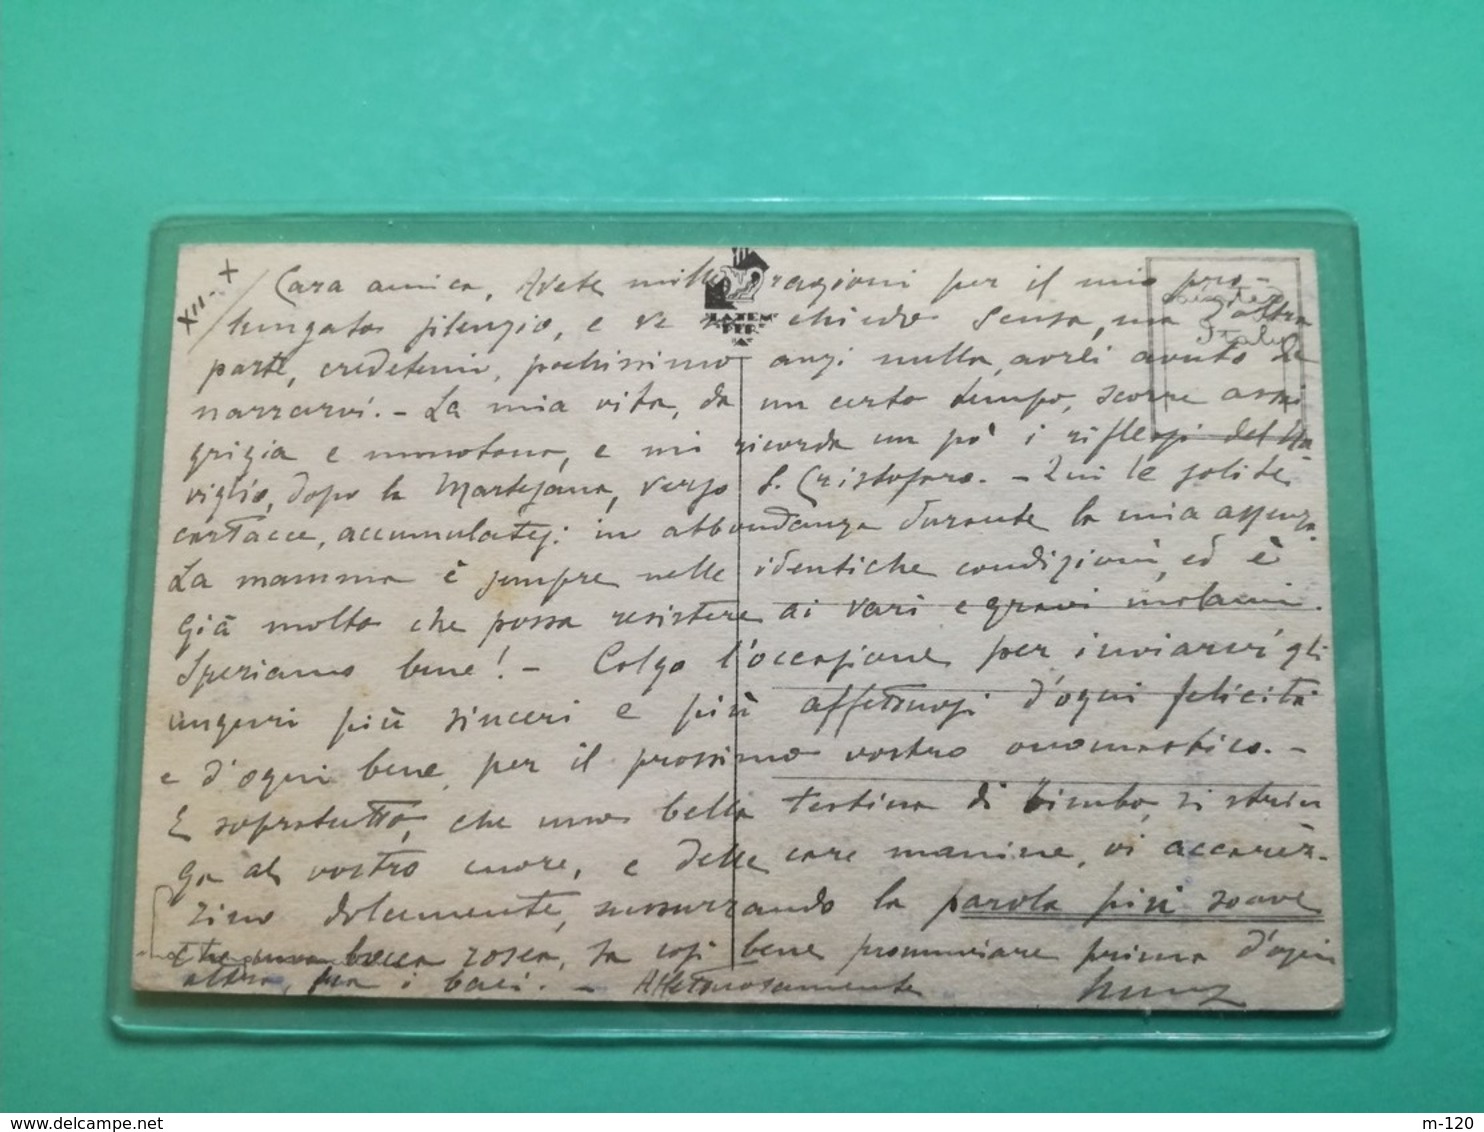 XII - X
Cara amica, Avete mille ragioni per il mio pro-
lungato silenzio, e ve ne chiedo scusa, ma d'altra
parte, credetemi, pochissimo anzi nulla, avrei avuto da
narrarvi. - La mia vita, da un certo tempo, scorre assai
grigia e monotona, e mi ricorda un pò i riflessi del Na
viglio, dopo la Martesana, verso S. Cristoforo. - Qui le solite
cartacce, accumulatesi in abbondanza durante la mia assenza.
La mamma è sempre nelle identiche condizioni, ed è
già molto che possa resistere ai vari e gravi malanni.
Speriamo bene! - Colgo l'occasione per inviarvi gli
auguri più sinceri e più affettuosi d'ogni felicità
e d'ogni bene, per il prossimo vostro onomastico. -
E sopratutto, che una bella testina di bimbo, si strin
ga al vostro cuore, e delle care manine, vi accarez-
zino dolcemente, sussurrando la parola più soave
che una bocca rosea, sa così bene pronunciare prima d'ogni
altra, fra i baci. - Affettuosamente
LAZEM
PER
delcampe.net
m-120